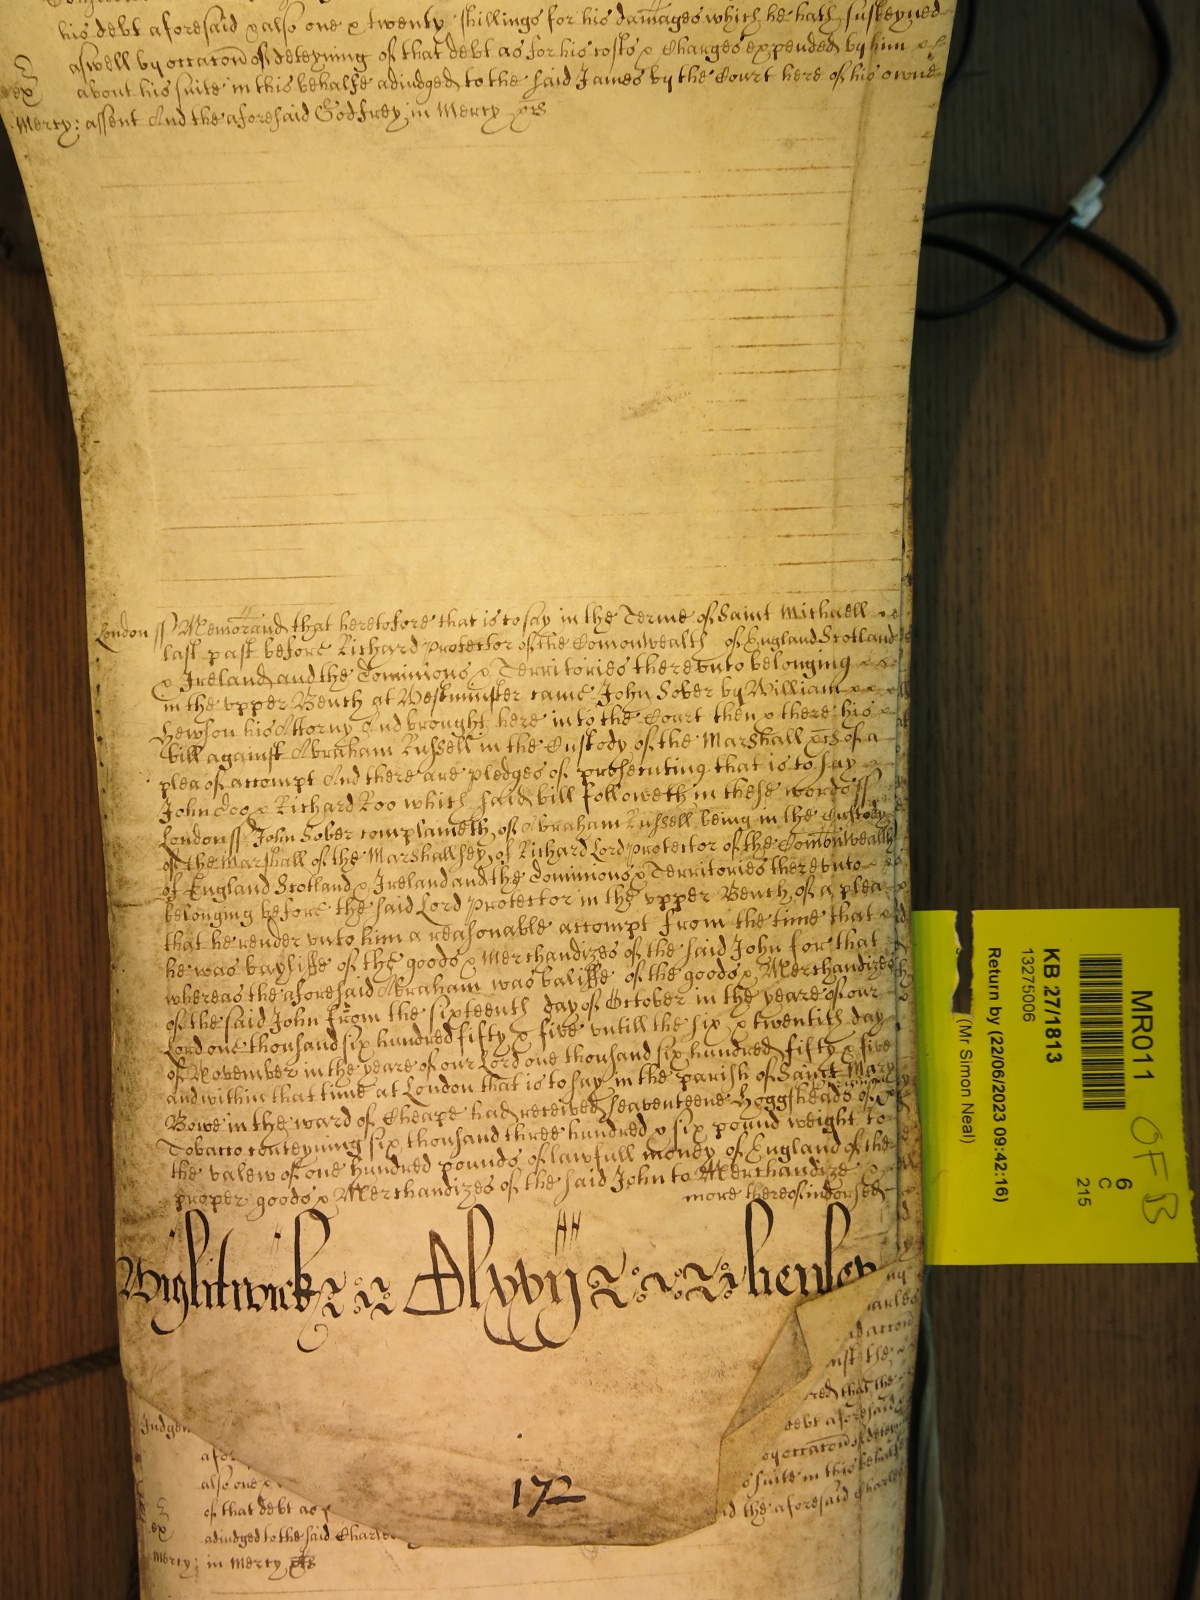 his debt aforesaid & also one & twenty shillings for his damages which he hath susteyned
aswell by occacon of deteyning of that debt as for his costs & Charges expended by him
ex about his suite in this behalfe adiudged to the said James by the Court here of his owne
Mercy: assent And the aforesaid Godfrey in Mercy &c
London ss Memorand that heretofore that is to say in the Terme of Saint Michaell
last past before Richard Protector of the Comonwealth of England Scotland
& Ireland and the Dominions & Territories therevnto belonging
in the vpper Bench at Westminster came John Sober by William
Hewson his Attorny And brought here in to the Court then & there his
bill against Abraham Russell in the Custody of the Marshall &c of a
plea of accompt And there are pledges of prosecuting that is to say
John Doo & Richard Roo which said bill followeth in these words ss
London ss John Sober complaineth of Abraham Russell being in the Custody
of the Marshall of the Marshallsey of Richard Lord Protector of the Comonwealth
of England Scotland & Ireland and the Dominions & Territories therevnto
belonging before the said Lord Protector in the vpper Bench of a plea
that he render vnto him a reasonable accompt from the time that
he was bayliffe of the goods & Merchandizes of the said John for that
whereas the aforesaid Abraham was baliffe of the goods & Merchandizes
of the said John from the sixteenth day of October in the yeare of our
Lord one thousand six hundred fifty & five vntill the six & twentith day
of November in the yeare of our Lord one thousand six hundred fifty & five
and within that time at London that is to say in the parish of Sainct Mary
Bowe in the ward of Cheape had received seaventeene Hoggsheads of
Tobacco conteyning six thousand three hundred & six pound weight to
the valew of one hundred pounds of lawfull money of England of the
proper goods & Merchandizes of the said John to Merchandize
more thereof indorsed
Wightwick Alwyn henley
172
Judgem
afor
also one &
of that debt as
ex adiudged to the said Charles
Mercy: in Mercy &c
inst the
red that the
debt aforesaid
by occacon of detey
s suite in this behalf
d the aforesaid Charles
MR011
OFB
6
C
215
KB 27/1813
13275006
Return by (22/06/2023 09:42:16)
(Mr Simon Neal)